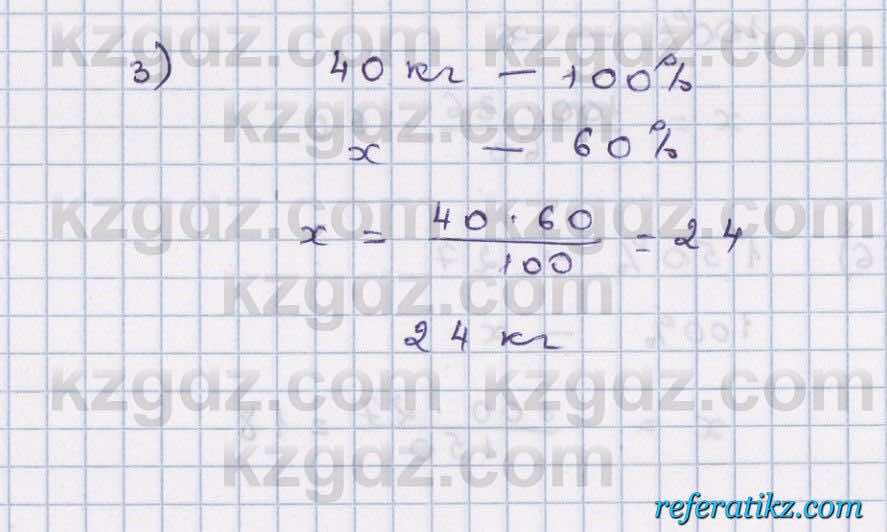 kzgdz.com kzgdz.com
3) 40 кг — 100%
kzgdz.com
x — 60%
kzgdz.com kzgdz.com
x = 40 · 60 / 100 = 24
kzgdz.com
24 кг
kzgdz.com kzgdz.com
kzgdz.com
referatikz.com